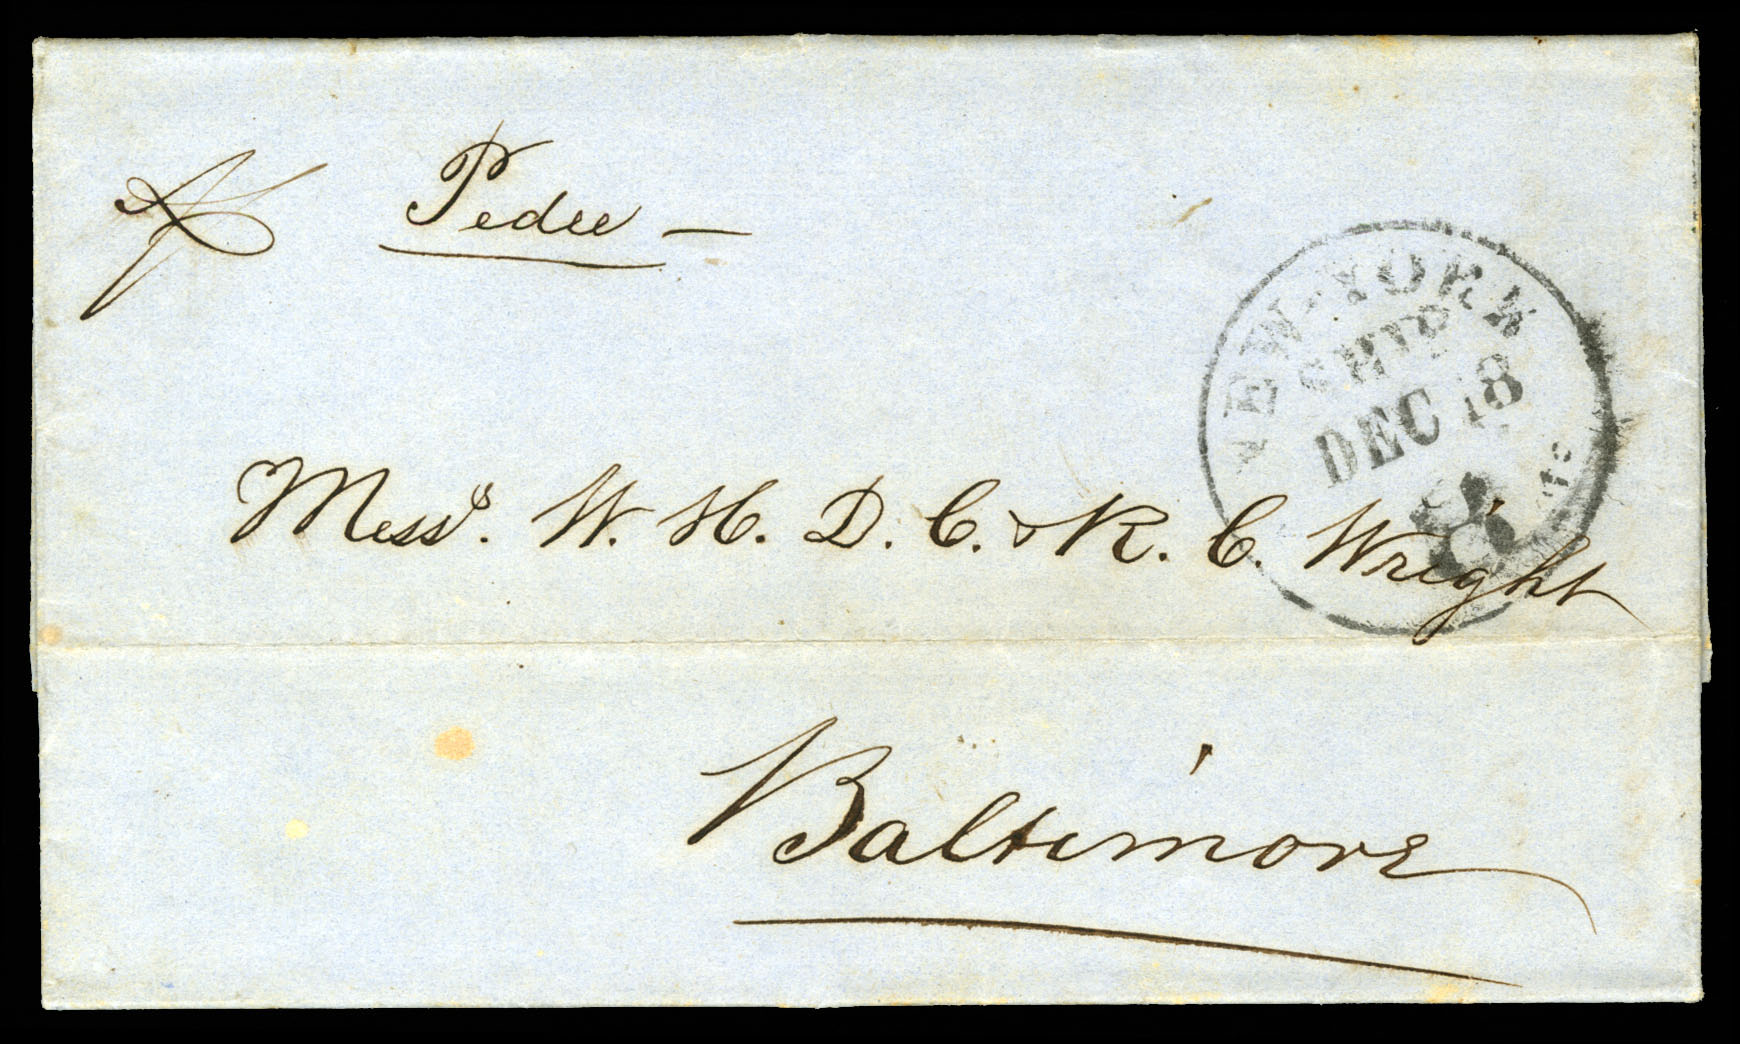 ℘ Pedee —
NEW-YORK
SHIP
DEC 18
cts
Messrs. W. H. D. C. & R. C. Wright
Baltimore